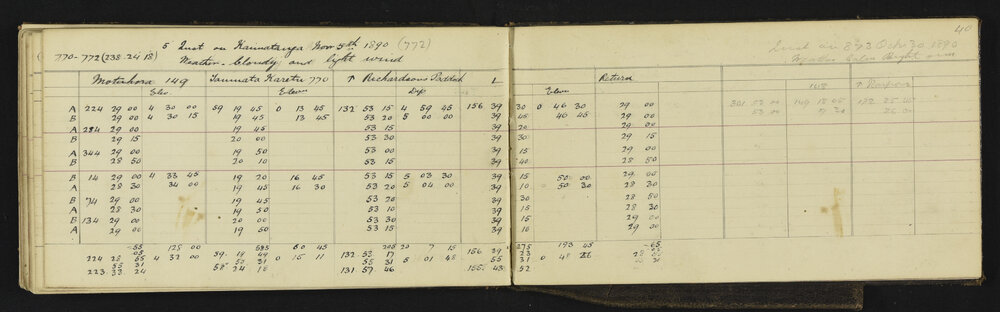 5 Inst on Kaumatanga Nov 5th 1890 (772)
770-772 (238.24.18)
Weather - Cloudy and light wind
40
Inst on 873 Oct 30 1890
Weather Calm Bright sun
Motuhora 149 Taumata Karetu 770 ↑ Richardsons Paddock L Return
Elev. Elevn Dep Elevn
A 224 29 00 4 30 00 59 19 45 0 13 45 132 53 15 4 59 45 156 39 30 0 46 30 29 00 301 53 00
B 29 00 4 30 15 19 45 13 45 53 20 5 00 00 39 45 46 45 29 00 53 00
A 284 29 00 19 45 53 15 39 20 29 00
B 29 15 20 00 53 30 39 30 29 15
A 344 29 00 19 50 53 00 39 15 29 00
B 28 50 20 10 53 15 39 40 28 50
B 14 29 00 4 33 45 19 20 16 45 53 15 5 03 30 39 15 50 00 29 00
A 28 30 34 00 19 45 16 30 53 20 5 04 00 39 10 50 30 28 30
B 74 29 00 19 45 53 20 39 30 28 50
A 28 30 19 50 53 10 39 15 28 30
B 134 29 00 20 00 53 30 39 15 29 00
A 29 00 19 50 53 15 39 15 29 00
55 125 00 595 60 45 205 20 7 15 275 193 45 65
224 28 55 4 32 00 59. 19 49 0 15 11 132 53 17 5 01 48 156 39 23 0 48 26
55 31 55 31 55 31 55 31
223. 33. 24 58 24 18 131. 57 46 155. 43 52